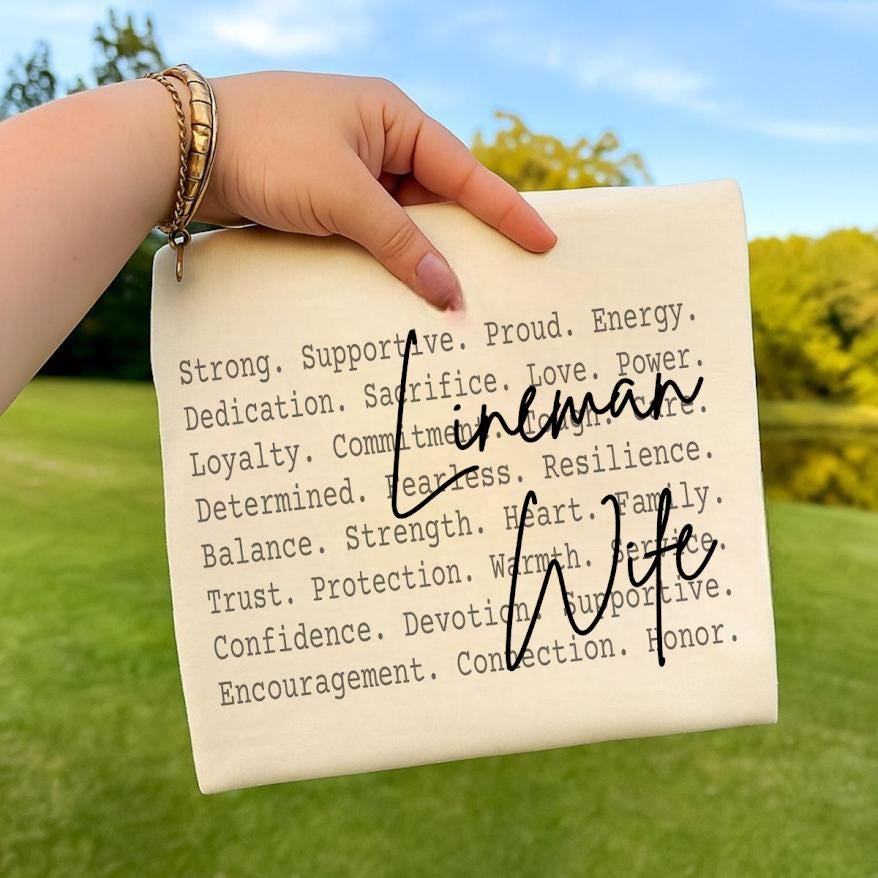 Strong. Supportive. Proud. Energy.
Dedication. Sacrifice. Love. Power.
Loyalty. Commitment. Tough. Care.
Determined. Fearless. Resilience.
Balance. Strength. Heart. Family.
Trust. Protection. Warmth. Service.
Confidence. Devotion. Supportive.
Encouragement. Connection. Honor.
Lineman
Wife